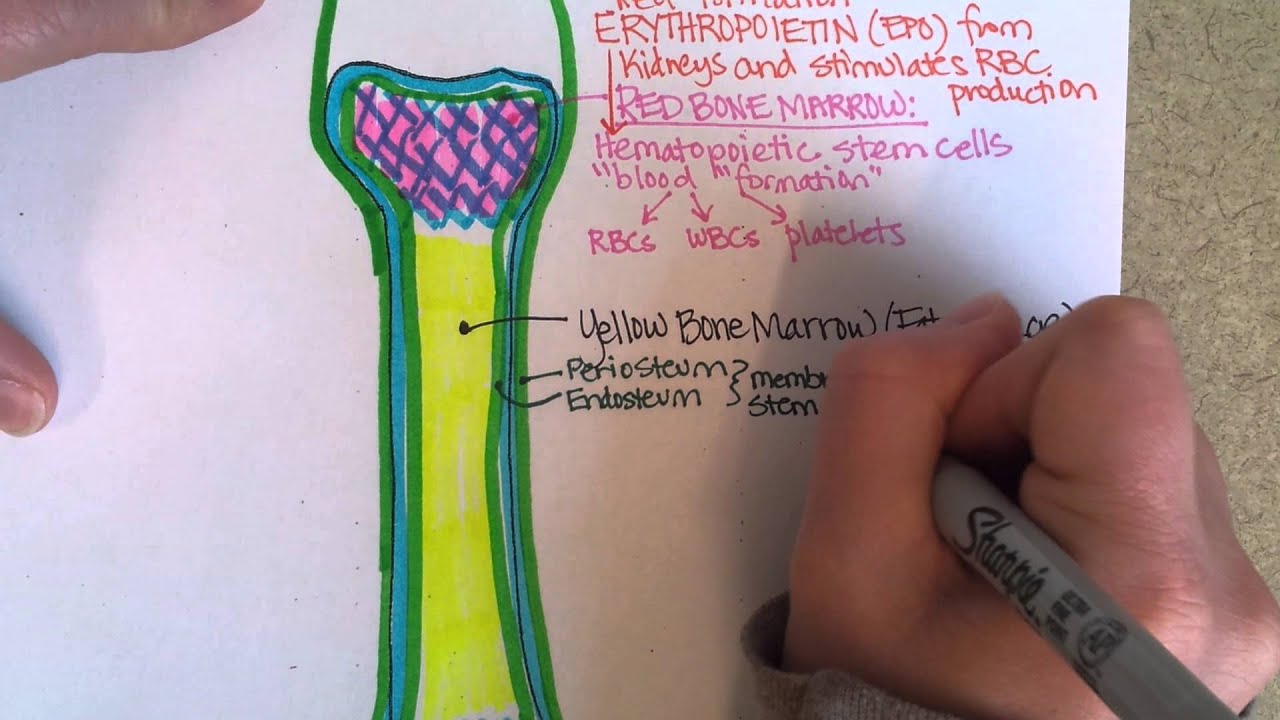 ERYTHROPOIETIN (EPO) from
Kidneys and stimulates RBC
production
RED BONE MARROW:
Hematopoietic stem cells
"blood "formation"
RBCs WBCs platelets
Yellow Bone Marrow
Periosteum
Endosteum
stem
Sharpie